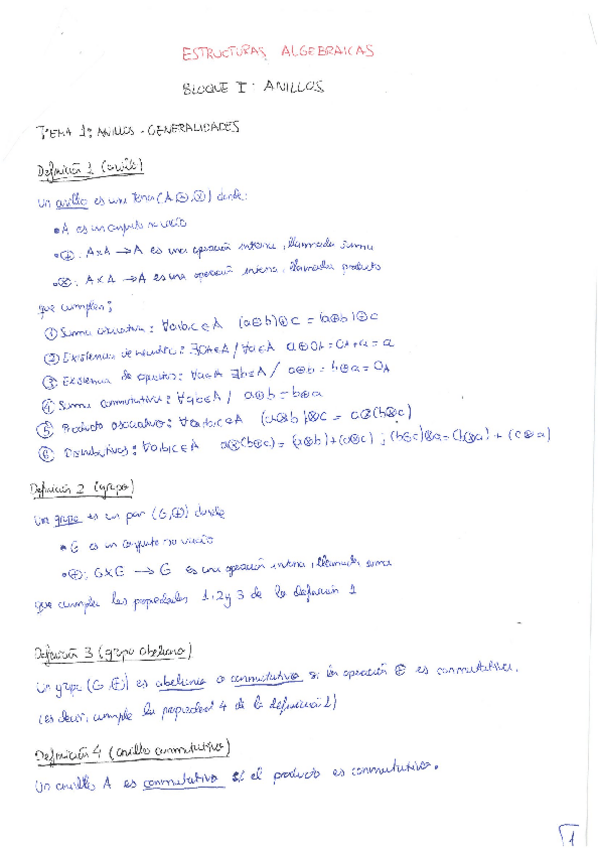 ESTRUCTURAS ALGEBRAICAS
BLOQUE I: ANILLOS
TEMA 1: ANILLOS - GENERALIDADES
Definición 1 (anillo)
Un anillo es una terna (A,⊕,⊗) donde:
• A es un conjunto no vacío
• ⊕: A×A → A es una operación interna, llamada suma
• ⊗: A×A → A es una operación interna, llamada producto
que cumplen:
① Suma asociativa: ∀a,b,c∈A (a⊕b)⊕c = (a⊕b)⊕c
② Existencia de neutro: ∃0A∈A / ∀a∈A a⊕0A = 0A+a = a
③ Existencia de opuestos: ∀a∈A ∃b∈A / a⊕b = b⊕a = 0A
④ Suma conmutativa: ∀a,b∈A / a⊕b = b⊕a
⑤ Producto asociativo: ∀a,b,c∈A (a⊗b)⊗c = a⊗(b⊗c)
⑥ Distributivas: ∀a,b,c∈A a⊗(b⊕c) = (a⊗b)+(a⊗c) ; (b⊕c)⊗a = (b⊗a) + (c⊗a)
Definición 2 (grupo)
Un grupo es un par (G,⊕) donde
• G es un conjunto no vacío
• ⊕: G×G → G es una operación interna, llamada suma
que cumple las propiedades 1, 2 y 3 de la definición 1
Definición 3 (grupo abeliano)
Un grupo (G,⊕) es abeliano o conmutativo si la operación ⊕ es conmutativa.
(es decir, cumple la propiedad 4 de la definición 1)
Definición 4 (anillo conmutativo)
Un anillo A es conmutativo si el producto es conmutativo.
1